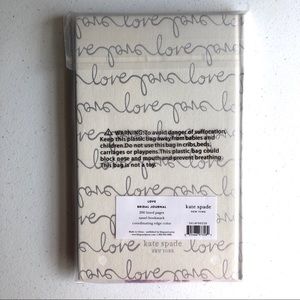 love love love
love love love
love love love
love love love
⚠WARNING: To avoid danger of suffocation,
Keep this plastic bag away from babies and
children. Do not use this bag in cribs, beds,
carriages or playpens. This plastic bag could
block nose and mouth and prevent breathing.
This bag is not a toy.
LOVE
BRIDAL JOURNAL
200 lined pages
satin bookmark
coordinating edge color
kate spade
NEW YORK
kate spade
NEW YORK